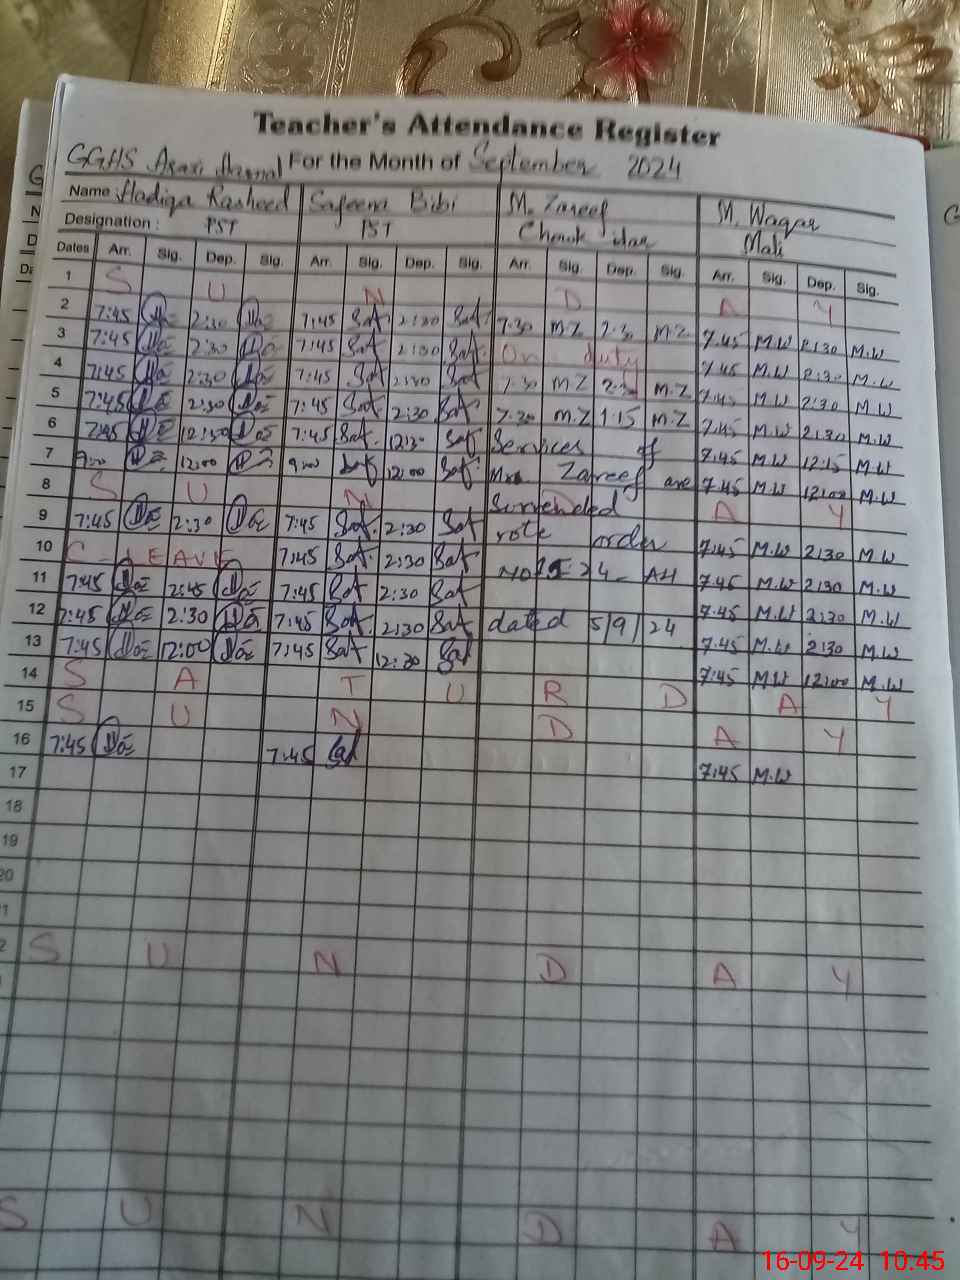 Teacher's Attendance Register
GGHS For the Month of September 2024
Name : Hadiqa Rasheed Safeena Bibi M. Zareef M. Waqar
Designation : PST PST Chowkidar Mali
Dates Arr. Sig. Dep. Sig. Arr. Sig. Dep. Sig. Arr. Sig. Dep. Sig. Arr. Sig. Dep. Sig.
1 S U N D A Y
2 7:45 2:30 7:45 Saf 2:30 Saf 7:30 M.Z 2:30 M.Z 7:45 M.W 2:30 M.W
3 7:45 2:30 7:45 Saf 2:30 Saf On duty 7:45 M.W 2:30 M.W
4 7:45 2:30 7:45 Saf 2:30 Saf 7:30 M.Z M.Z 7:45 M.W 2:30 M.W
5 7:45 2:30 7:45 Saf 2:30 Saf 7:30 M.Z 1:15 M.Z 7:45 M.W 2:30 M.W
6 7:45 12:30 7:45 Saf 12:30 Saf Services of 7:45 M.W 12:15 M.W
7 9:00 12:00 9:00 Saf 12:00 Saf Mr. Zareef are 7:45 M.W 12:00 M.W
8 S U N Surrended A Y
9 7:45 2:30 7:45 Saf 2:30 Saf vote order 7:45 M.W 2:30 M.W
10 C-LEAVE 7:45 Saf 2:30 Saf NO 24 AH 7:45 M.W 2:30 M.W
11 7:45 2:45 7:45 Saf 2:30 Saf 7:45 M.W 2:30 M.W
12 7:45 2:30 7:45 Saf 2:30 Saf dated 5/9/24 7:45 M.W 2:30 M.W
13 7:45 12:00 7:45 Saf 12:30 Saf 7:45 M.W 12:00 M.W
14 S A T U R D A Y
15 S U N D A Y
16 7:45 7:45 Saf 7:45 M.W
17
18
19
20
S U N D A Y
S U N D A Y
16-09-24 10:45